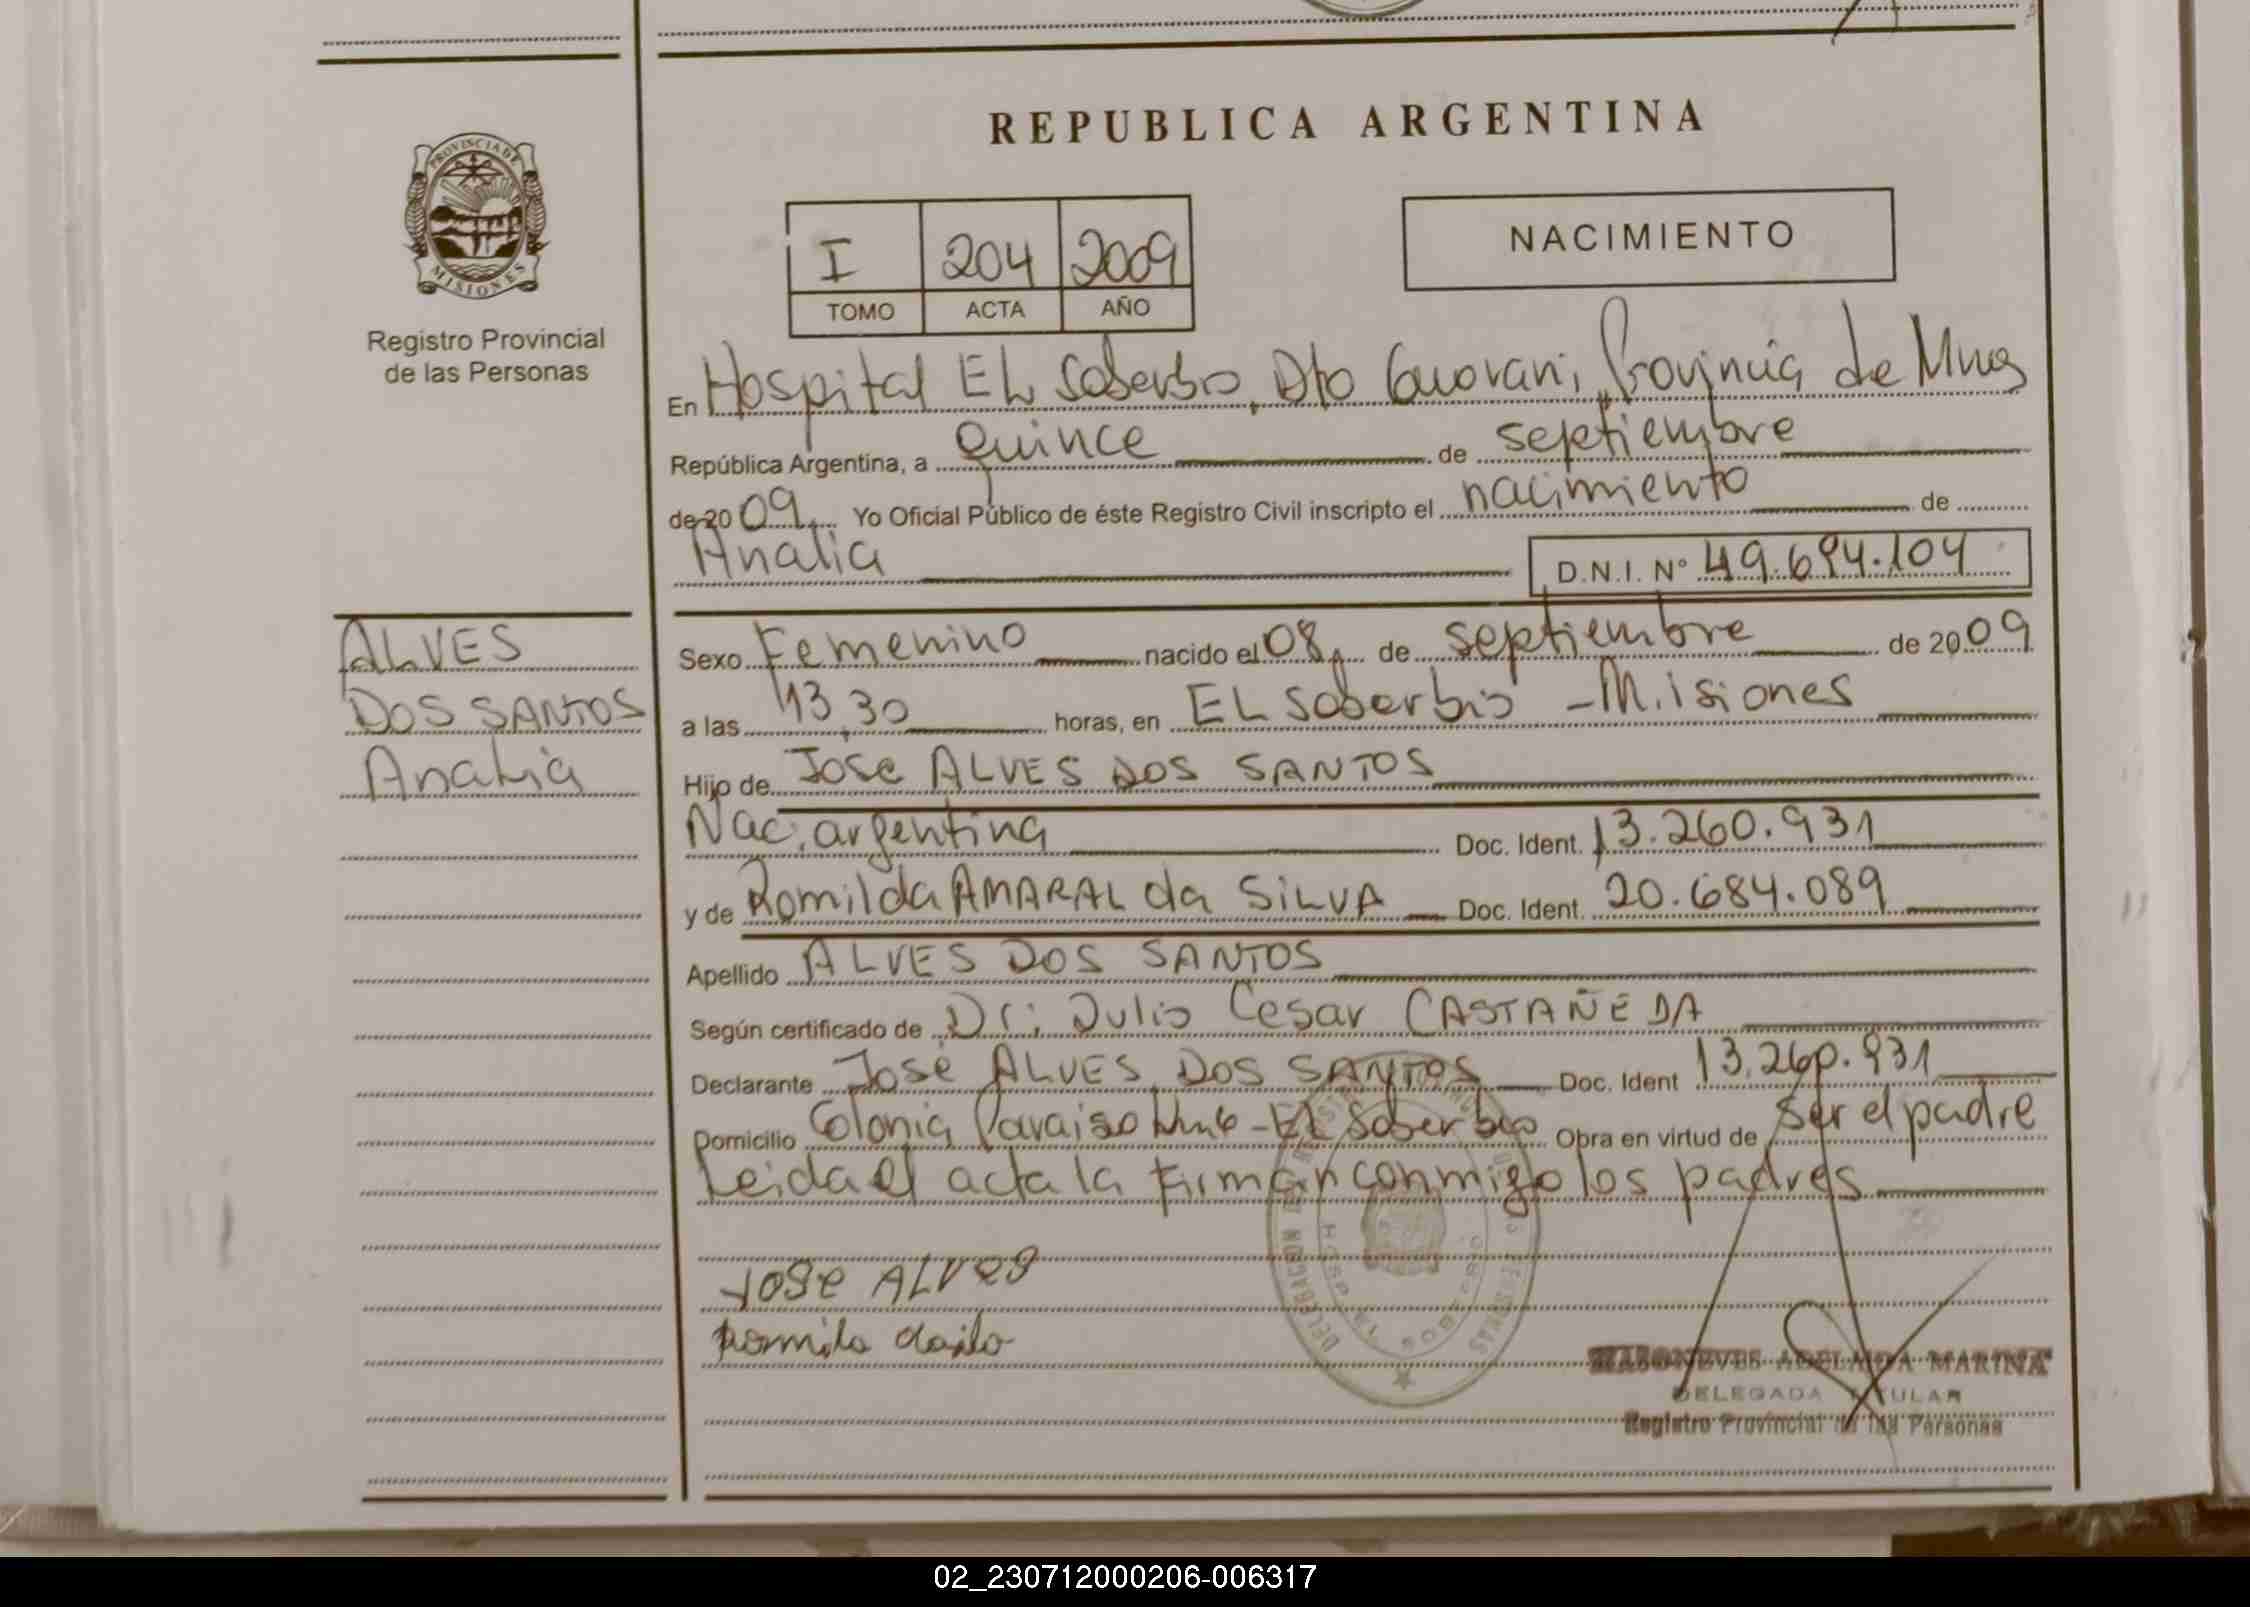 REPUBLICA ARGENTINA
PROVINCIA DE
MISIONES
Registro Provincial
de las Personas
I 204 2009
TOMO ACTA AÑO
NACIMIENTO
En Hospital EL Soberbio, Dto Guarani, Provincia de Mnes
República Argentina, a quince de septiembre
de 2009. Yo Oficial Público de éste Registro Civil inscripto el nacimiento de
Analia
D.N.I. Nº 49.694.104
ALVES
DOS SANTOS
Analia
Sexo Femenino nacido el 08, de septiembre de 2009
a las 13,30 horas, en EL Soberbio - Misiones
Hijo de Jose ALVES DOS SANTOS
Nac. argentina Doc. Ident. 13.260.931
y de Romilda AMARAL da SiLVA Doc. Ident. 20.684.089
Apellido ALVES DOS SANTOS
Según certificado de Dr: Julio Cesar CASTAÑEDA
Declarante José ALVES DOS SANTOS Doc. Ident 13.260.931
Domicilio Colonia Paraiso km6 - EL Soberbio Obra en virtud de ser el padre
Leida el acta la firman conmigo los padres
JOSE ALVES
ADELAIDA MARINA
DELEGADA TITULAR
Registro Provincial de las Personas
02_230712000206-006317